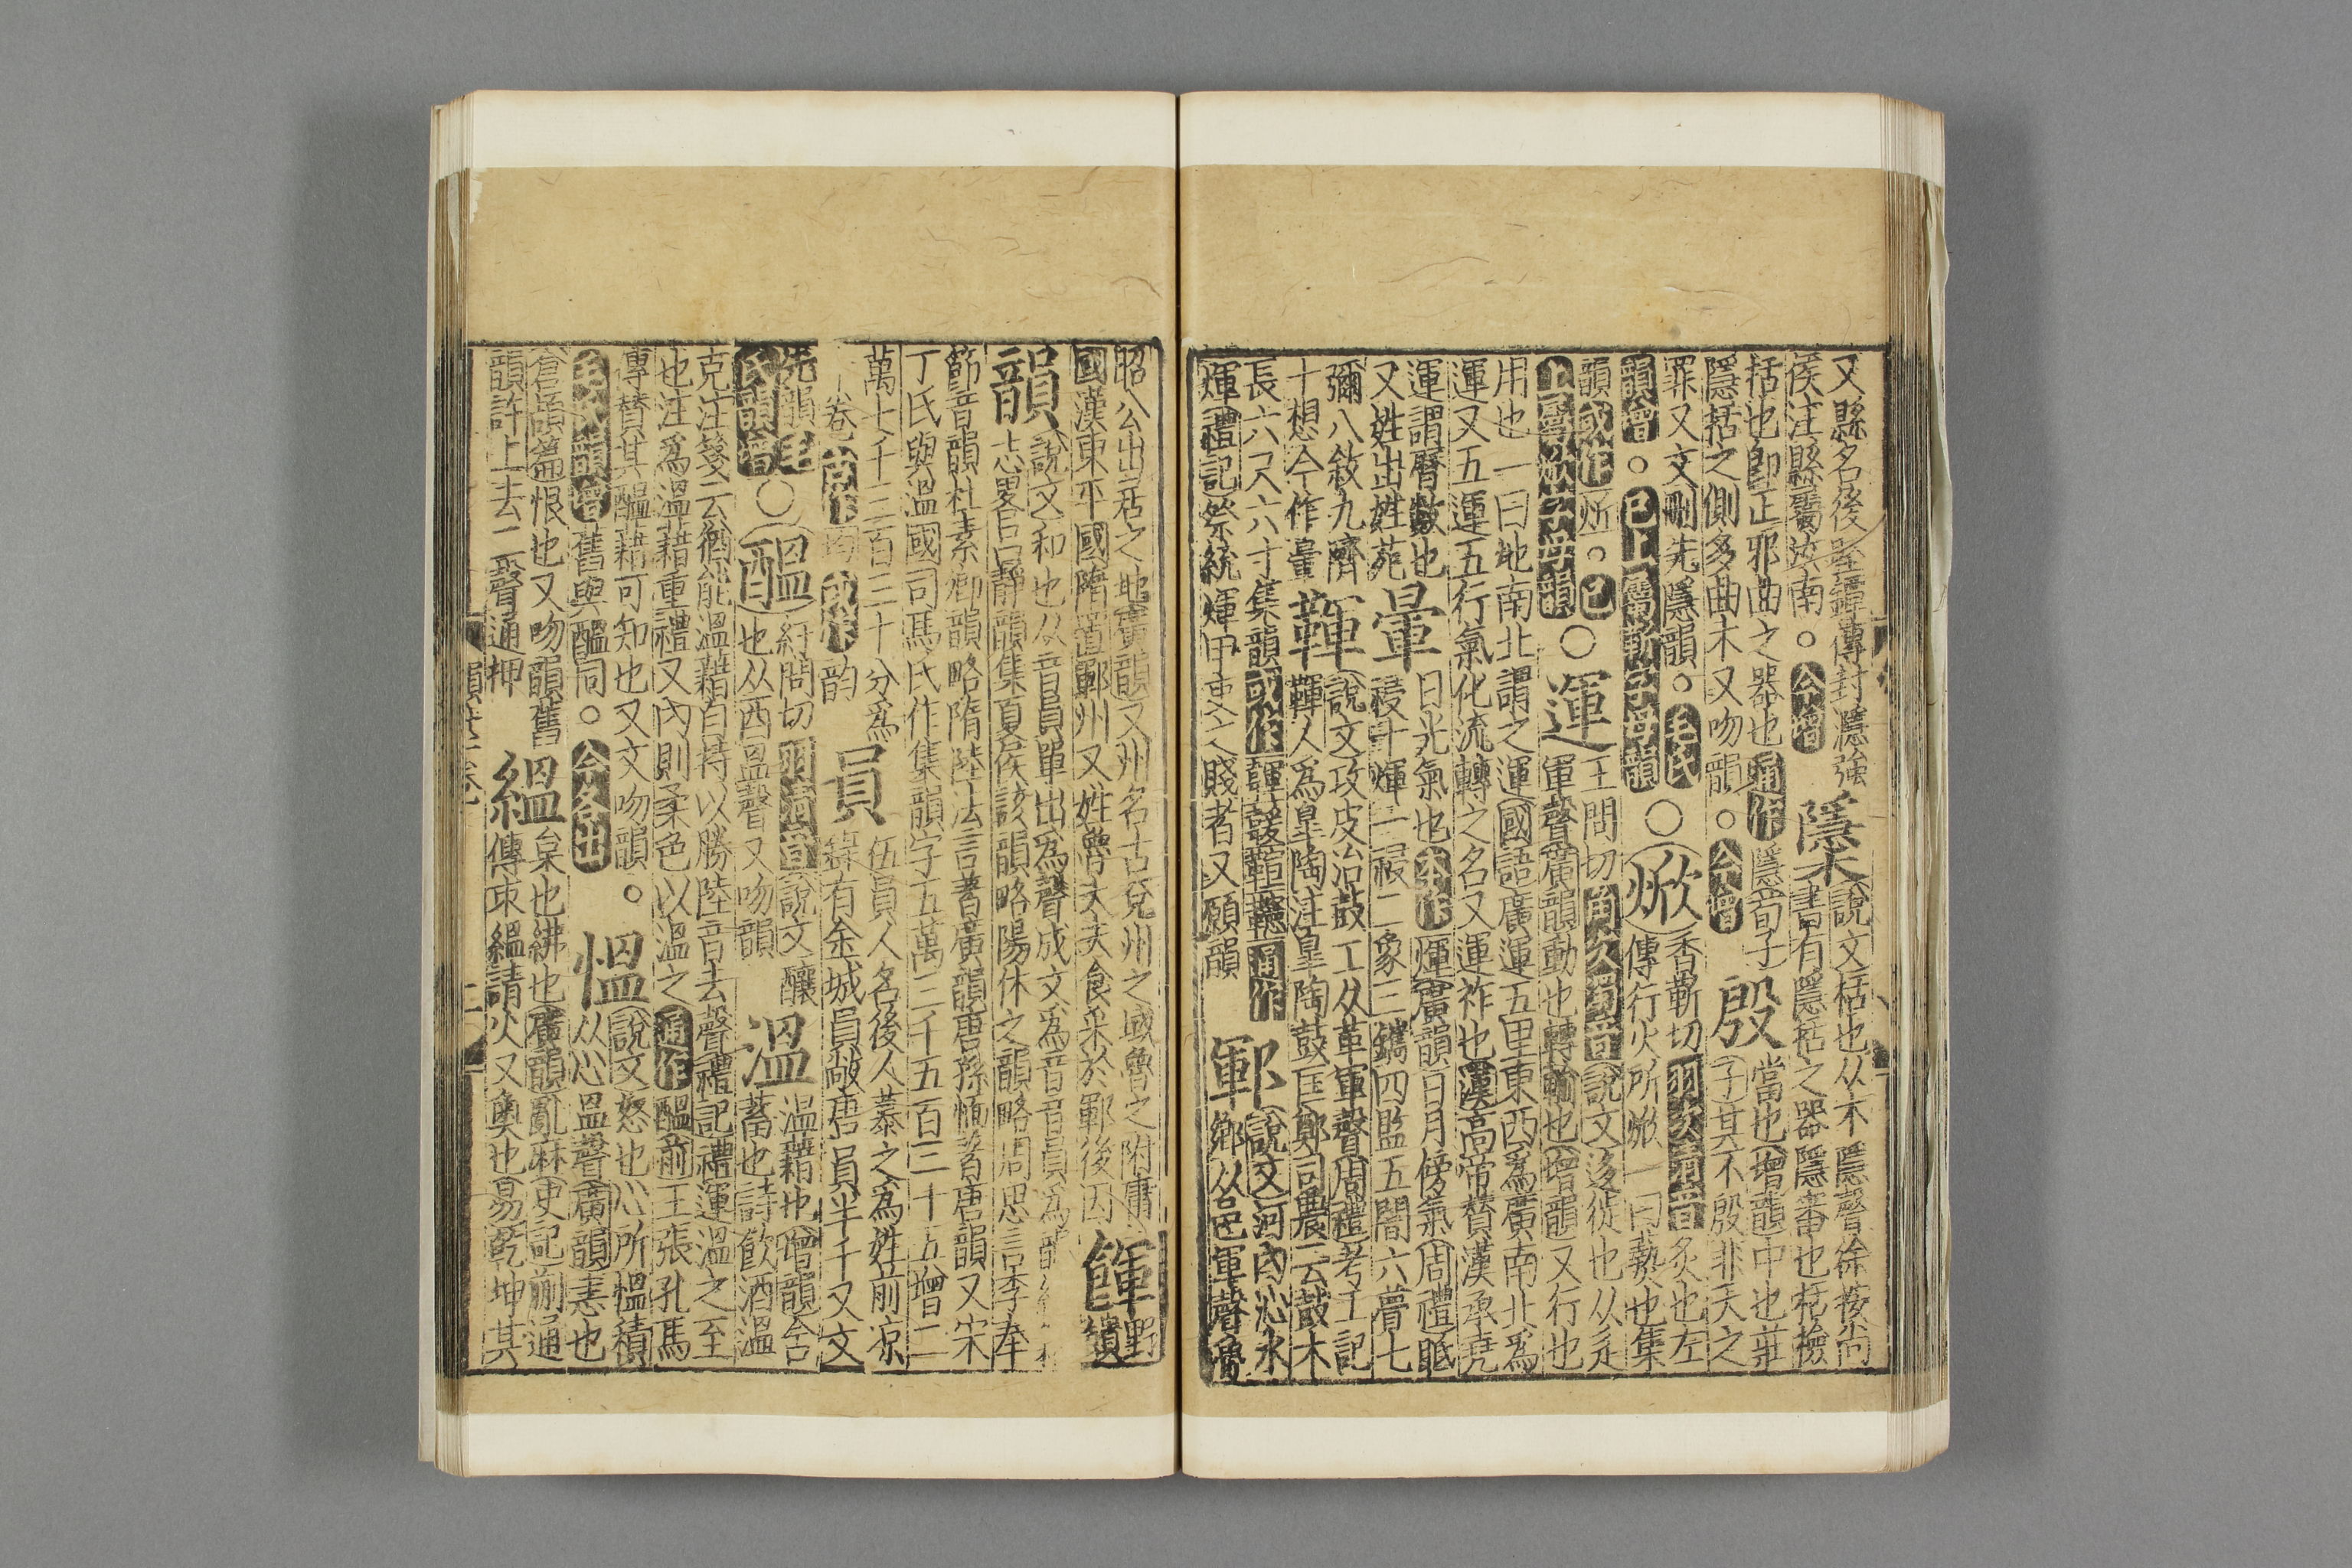 又縣名後隱彊傳封濦強
侯注縣屬汝南○今增
櫽說文栝也从木隱聲徐按尚
書有隱栝之器隱審也栝檢
栝也即正邪曲之器也通作隱荀子
隱栝之側多曲木又吻韻○今增
殷當也增韻中也莊
子其不殷非天之
罪又文刪先隱韻○毛氏
韻增○已上屬靳字母韻
○焮香靳切羽次清音炙也左
傳行火所焮一曰爇也集
韻或作炘○已
上屬焮字母韻
○運王問切角次濁音說文迻徙也从辵
軍聲廣韻動也轉輸也增韻又行也
用也一曰地南北謂之運國語廣運五里東西爲廣南北爲
運又五運五行氣化流轉之名又運祚也漢高帝贊漢承堯
運謂曆數也
又姓出姓苑
暈日光氣也本作煇廣韻日月傍氣周禮眡
祲十煇一祲二象三鑴四監五闇六瞢七
彌八敘九隮
十想今作暈
韗說文攻皮治鼓工从革軍聲周禮考工記
韗人爲皐陶注皐陶鼓匡鄭司農云鼓木
長六尺六寸集韻或作
煇禮記祭統煇甲吏之賤者又願韻
鄆說文河內沁水
鄉从邑軍聲魯
昭公出居之地廣韻又州名古兗州之域魯之附庸
國漢東平國隋置鄆州又姓魯大夫食采於鄆後因
餫野
饋
韻說文和也从音員單出爲聲成文爲音音員爲韻
志畧呂靜韻集夏侯該韻略陽休之韻略周思言李奉
節音韻杜素卿韻略隋陸法言著廣韻唐孫愐著唐韻又宋
丁氏與溫國司馬氏作集韻字五萬三千五百三十五增二
萬七千三百三十分爲
卷古作均或作韵
員伍員人名後人慕之爲姓前凉
錄有金城員敞唐員半千又文
先韻毛
氏韻增
○醞紆問切羽清音說文釀
也从酉𥁕聲又吻韻
溫溫藉也增韻含
蓄也詩飲酒溫
克注箋云猶能溫藉自持以勝陸音去聲禮記禮運溫之至
也注爲溫藉重禮又內則柔色以溫之通作醞前王張孔馬
傳贊其醞藉可知也又文吻韻○
毛氏韻增舊與醞同○今各出
慍說文怒也心所慍積
从心𥁕聲廣韻恚也
倉頡篇恨也又吻韻舊
韻許上去二聲通押
縕枲也紼也廣韻亂麻史記蒯通
傳束縕請火又奧也易乾坤其